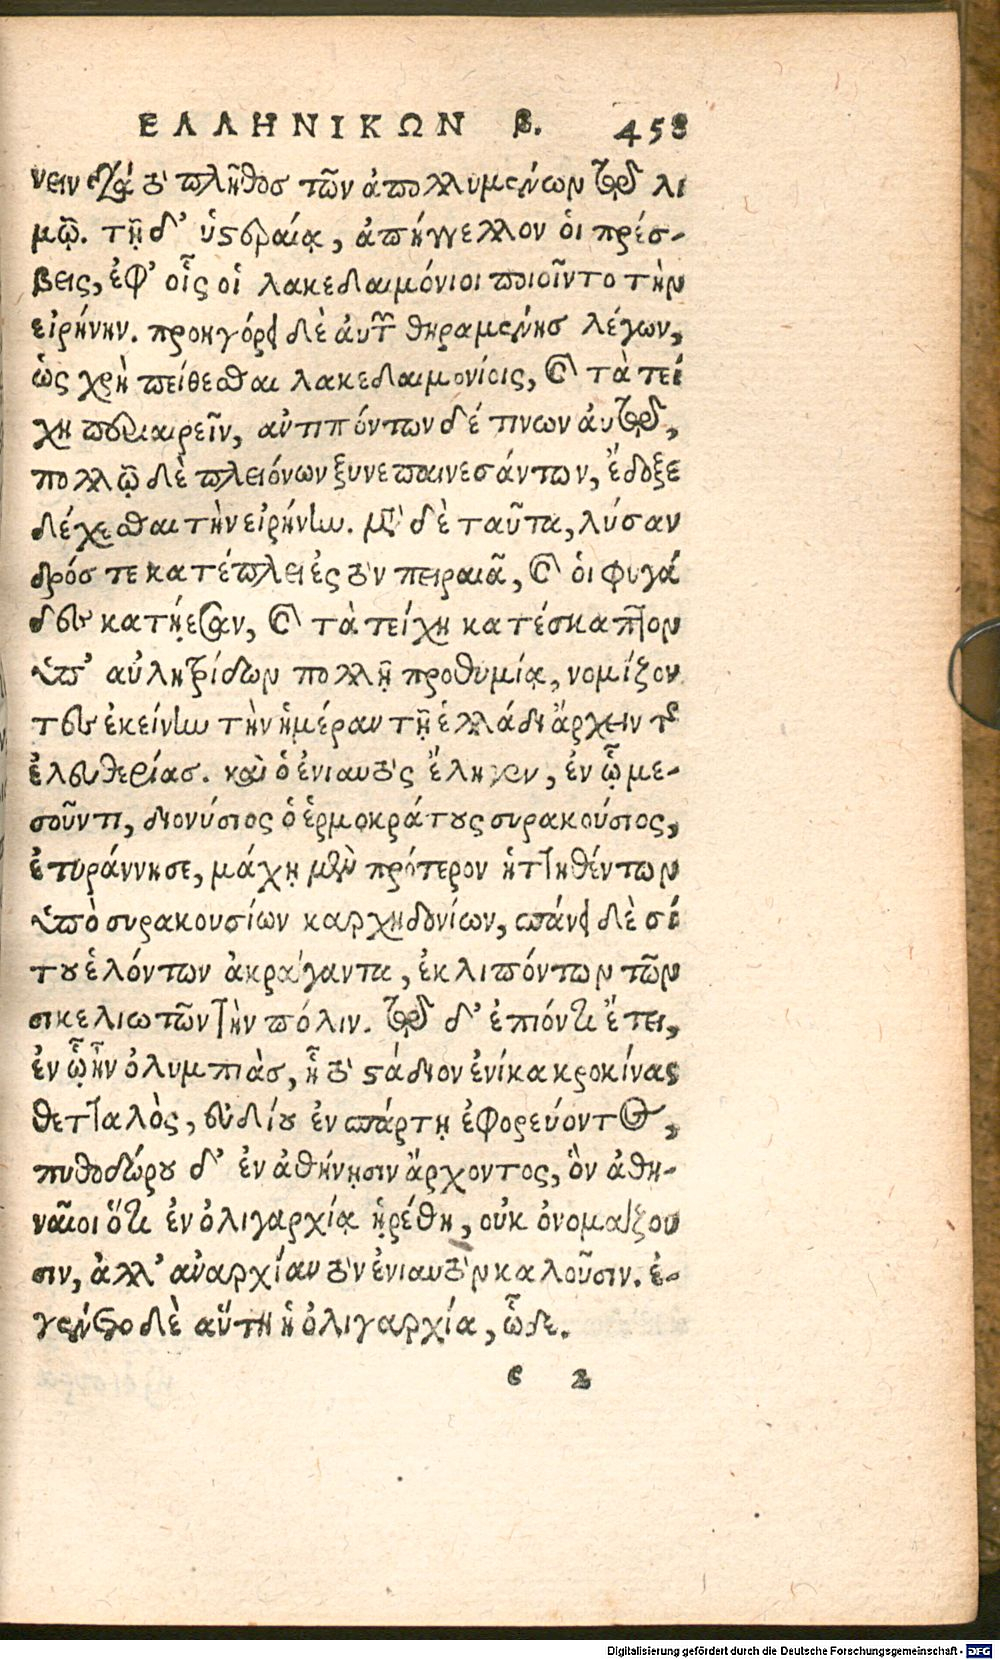 ΕΛΛΗΝΙΚΩΝ β. 458
νειν διὰ τὸ πλῆθος τῶν ἀπολλυμένων τῷ λι
μῷ. τῇ δ’ ὑστεραίᾳ, ἀπήγγελλον οἱ πρέσ-
βεις, ἐφ’ οἷς οἱ λακεδαιμόνιοι ποιοῖντο τὴν
εἰρήνην. προηγόρει δὲ ἀυτῶν θηραμένης λέγων,
ὡς χρὴ πείθεσθαι λακεδαιμονίοις, καὶ τὰ τεί
χη περιαιρεῖν, ἀντιπόντων δέ τινων ἀυτῷ,
πολλῷ δὲ πλειόνων ξυνεπαινεσάντων, ἔδοξε
δέχεσθαι τὴν εἰρήνην. μετὰ δὲ ταῦτα, λύσαν
δρός τε κατέπλει ἐς τὸν πειραιᾶ, καὶ ὁι φυγά
δες κατῄεσαν, καὶ τὰ τείχη κατέσκαπτον
ὑπ’ αὐλητρίδων πολλῇ προθυμίᾳ, νομίζον
τες ἐκείνην τὴν ἡμέραν τῇ ἑλλάδι ἄρχειν τῆς
ἐλευθερίας. καὶ ὁ ἐνιαυτὸς ἔληγεν, ἐν ᾧ με-
σοῦντι, διονύσιος ὁ ἑρμοκράτους συρακούσιος,
ἐτυράννησε, μάχῃ μὲν πρότερον ἡττηθέντων
ὑπὸ συρακουσίων καρχηδονίων, σπάνει δὲ σί
του ἑλόντων ἀκράγαντα, ἐκλιπόντων τῶν
σικελιωτῶν τὴν πόλιν. τῷ δ’ ἐπιόντι ἔτει,
ἐν ᾧ ἦν ὀλυμπιὰς, ᾗ τὸ στάδιον ἐνίκα κροκίνας
θετταλὸς, εὐδίου ἐν σπάρτῃ ἐφορεύοντος,
πυθοδώρου δ’ ἐν ἀθήνῃσιν ἄρχοντος, ὃν ἀθη-
ναῖοι ὅτι ἐν ὀλιγαρχίᾳ ᾑρέθη, οὐκ ὀνομάζου
σιν, ἀλλ’ ἀναρχίαν τὸν ἐνιαυτὸν καλοῦσιν. ἐ-
γένετο δὲ αὕτη ἡ ὀλιγαρχία, ὧδε.
e 2
Digitalisierung gefördert durch die Deutsche Forschungsgemeinschaft - DFG